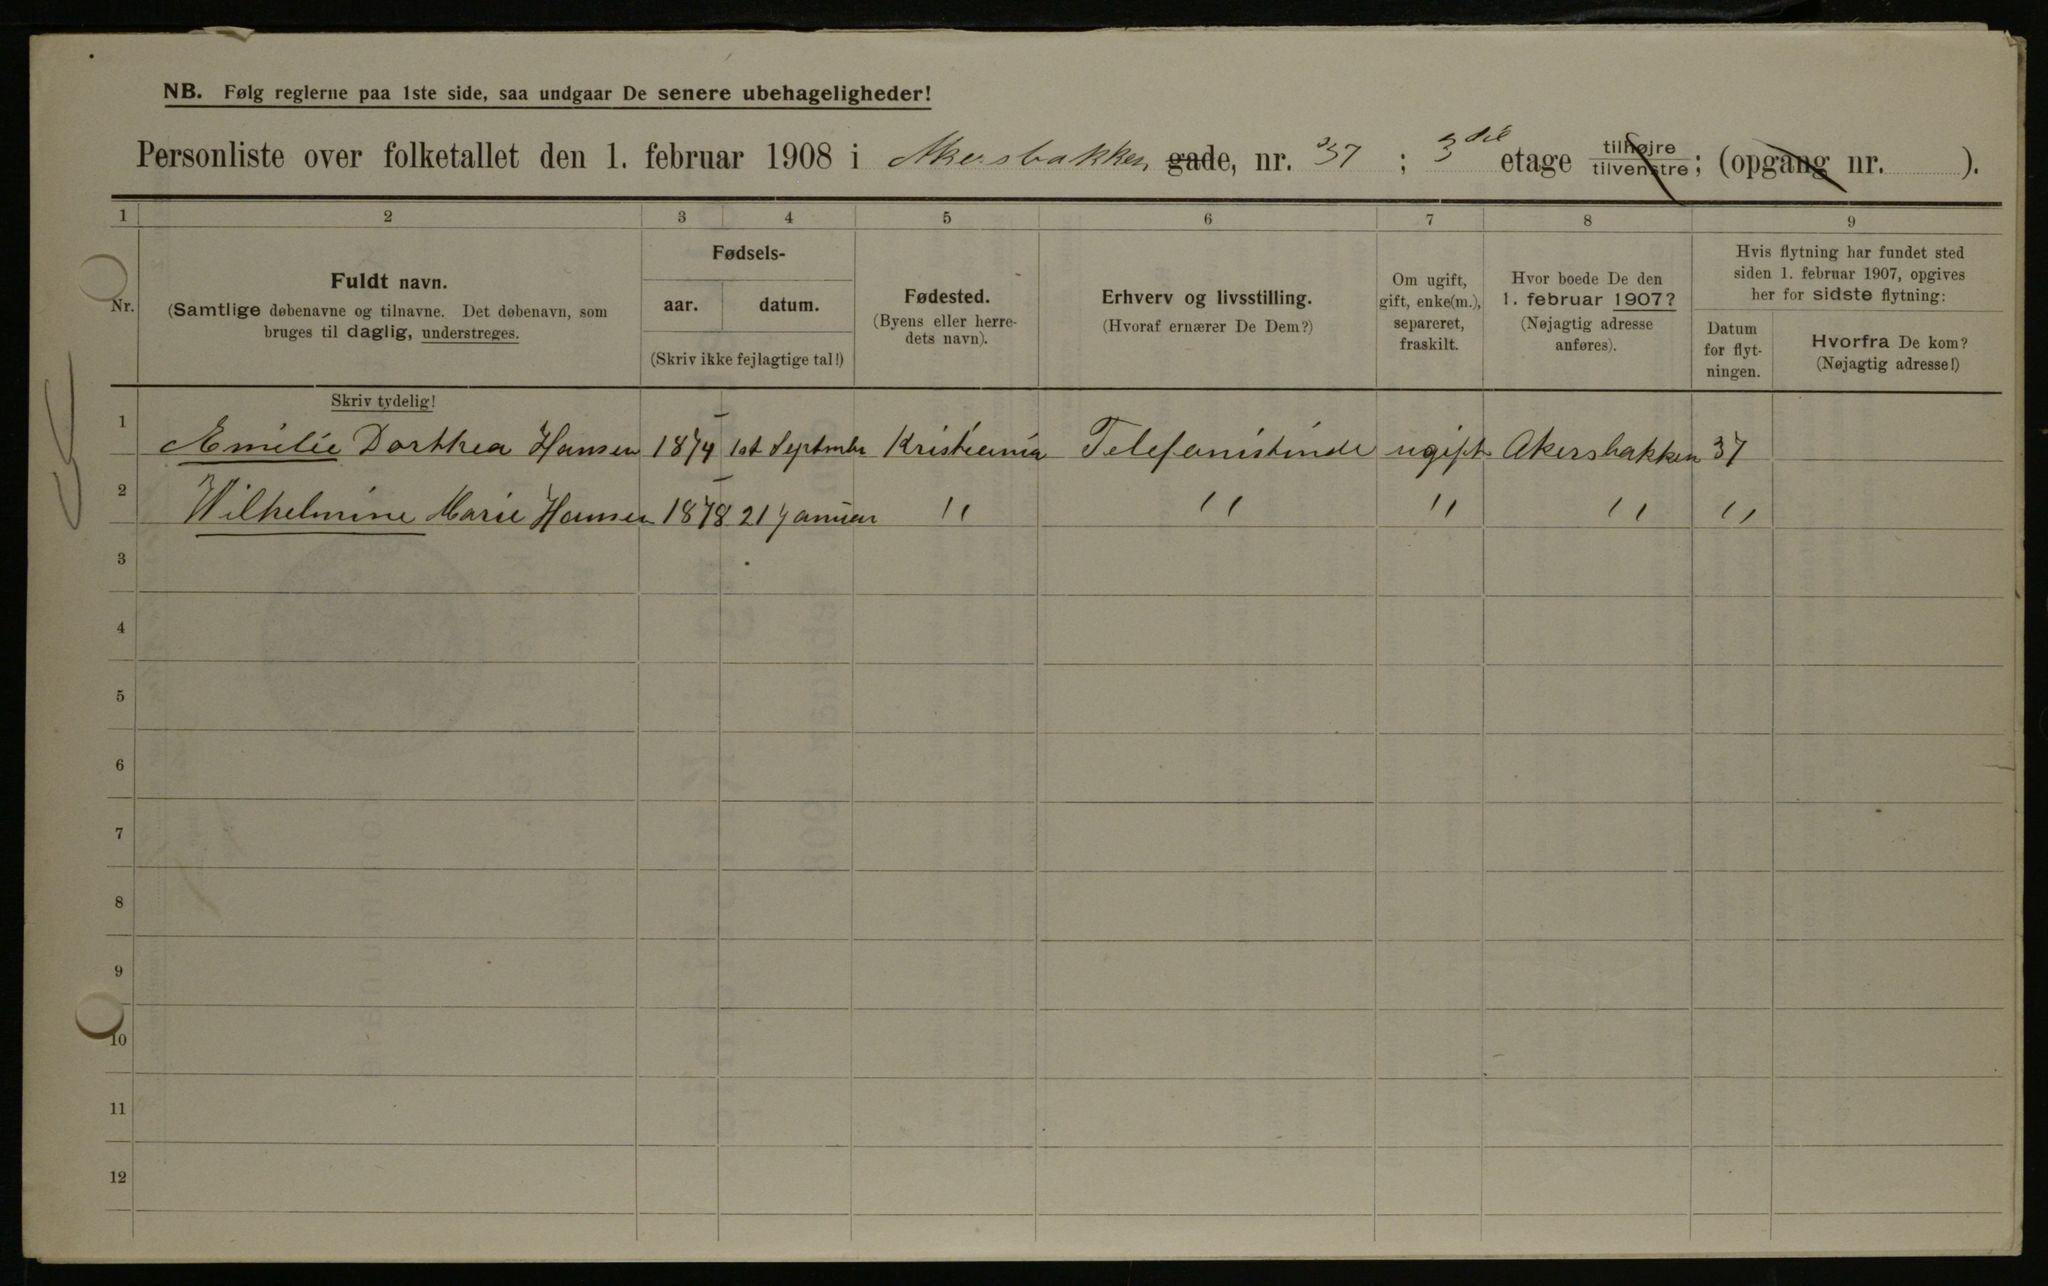 NB. Følg reglerne paa 1ste side, saa undgaar De senere ubehageligheder!
Personliste over folketallet den 1. februar 1908 i Akersbakken gade, nr. 37 ; 3die etage tilhøjre tilvenstre; (opgang nr. ).
1 2 3 4 5 6 7 8 9
Nr.
Fuldt navn.
(Samtlige døbenavne og tilnavne. Det døbenavn, som
bruges til daglig, understreges.
Skriv tydelig!
Fødsels-
aar. datum.
(Skriv ikke fejlagtige tal!)
Fødested.
(Byens eller herre-
dets navn).
Erhverv og livsstilling.
(Hvoraf ernærer De Dem?)
Om ugift,
gift, enke(m.),
separeret,
fraskilt.
Hvor boede De den
1. februar 1907?
(Nøjagtig adresse
anføres).
Hvis flytning har fundet sted
siden 1. februar 1907, opgives
her for sidste flytning:
Datum
for flyt-
ningen.
Hvorfra De kom?
(Nøjagtig adresse!)
1 Emilie Dorthea Hansen 1874 1st September Kristiania Telefonistinde ugift Akersbakken 37
2 Wilhelmine Marie Hansen 1878 21 Januar " " " " "
3
4
5
6
7
8
9
10
11
12